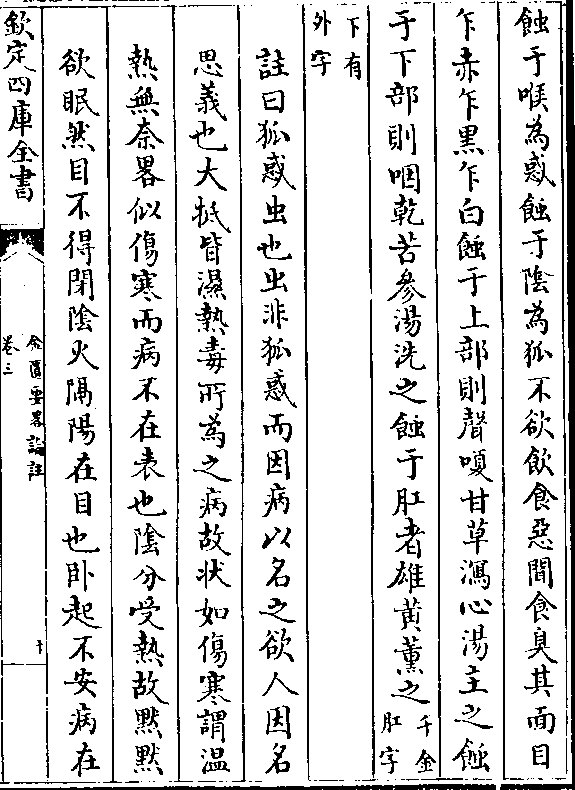 蝕于喉為惑蝕于陰為狐不欲飲食惡聞食臭其面目
乍赤乍黒乍白蝕于上部則聲嗄甘草瀉心湯主之蝕
于下部則咽乾苦參湯洗之蝕于肛者雄黄薰之千金肛字
下有外字
註曰狐惑虫也虫非狐惑而因病以名之欲人因名
思義也大抵皆濕熱毒所為之病故状如傷寒謂温
熱無奈畧似傷寒而病不在表也陰分受熱故黙黙
欲眠然目不得閉陰火隔陽在目也卧起不安病在
欽定四庫全書
金匱要畧論註
卷三
十